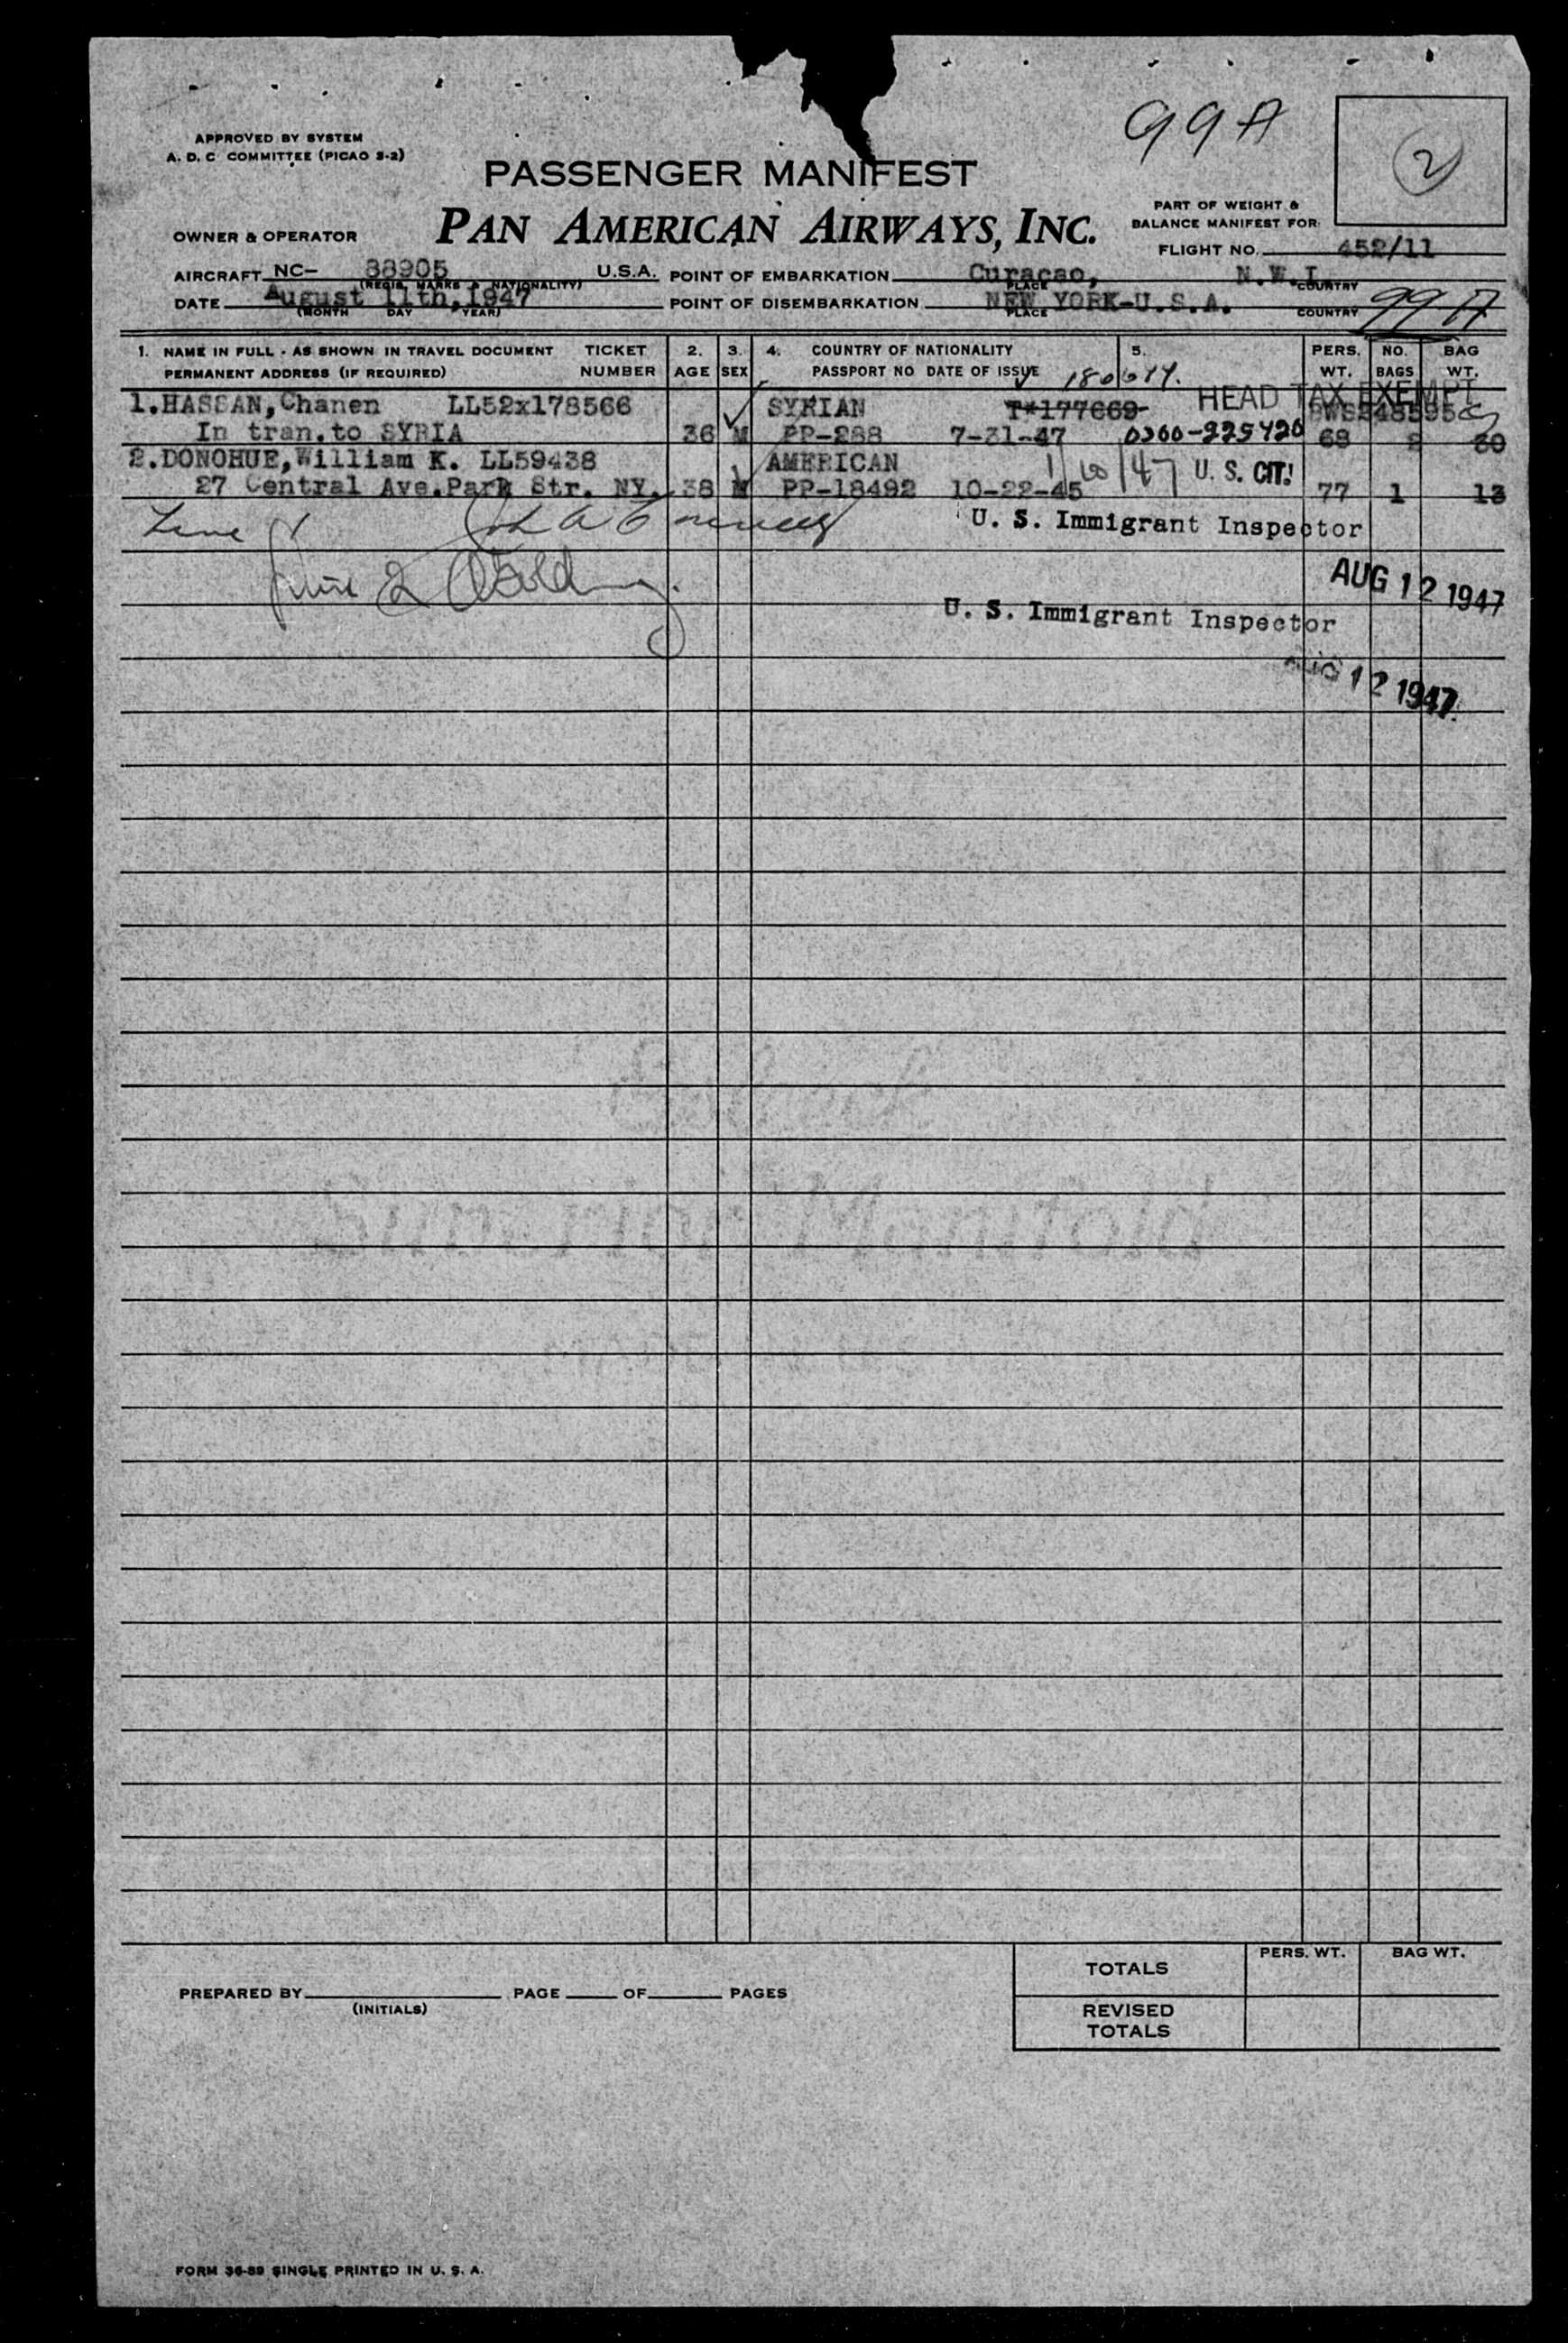 99A
APPROVED BY SYSTEM
A. D. C COMMITTEE (PICAO S-2)
2
PASSENGER MANIFEST
PAN AMERICAN AIRWAYS, INC.
PART OF WEIGHT &
BALANCE MANIFEST FOR
OWNER & OPERATOR
FLIGHT NO. 452/11
AIRCRAFT NC- 88905 U.S.A. POINT OF EMBARKATION Curacao, N.W.I.
(REGIS. MARKS & NATIONALITY) PLACE COUNTRY
DATE August 11th, 1947 POINT OF DISEMBARKATION NEW YORK-U.S.A. 99A
(MONTH DAY YEAR) PLACE COUNTRY
1. NAME IN FULL - AS SHOWN IN TRAVEL DOCUMENT TICKET 2. 3. 4. COUNTRY OF NATIONALITY 5. PERS. NO. BAG
PERMANENT ADDRESS (IF REQUIRED) NUMBER AGE SEX PASSPORT NO DATE OF ISSUE WT. BAGS WT.
HEAD TAX EXEMPT
1.HASSAN,Chanen LL52x178566 SYRIAN T*177669
In tran.to SYRIA 36 M PP-288 7-31-47 0300-225420 68 2 30
2.DONOHUE,William K. LL59438 AMERICAN U. S. CIT!
27 Central Ave.Park Str. NY. 38 M PP-18492 10-22-45 77 1 13
U. S. Immigrant Inspector
AUG 12 1947
U. S. Immigrant Inspector
AUG 12 1947
Superior Manifold
TOTALS PERS. WT. BAG WT.
PREPARED BY PAGE OF PAGES
(INITIALS)
REVISED
TOTALS
FORM 36-89 SINGLE PRINTED IN U. S. A.